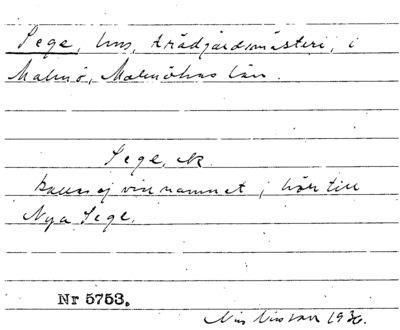 Sege, hus, trädgårdsmästeri, i
Malmö, Malmöhus län.
Sege, N.
kallas ej vid namnet; hör till
Nya Sege.
Nr 5753.
1936.